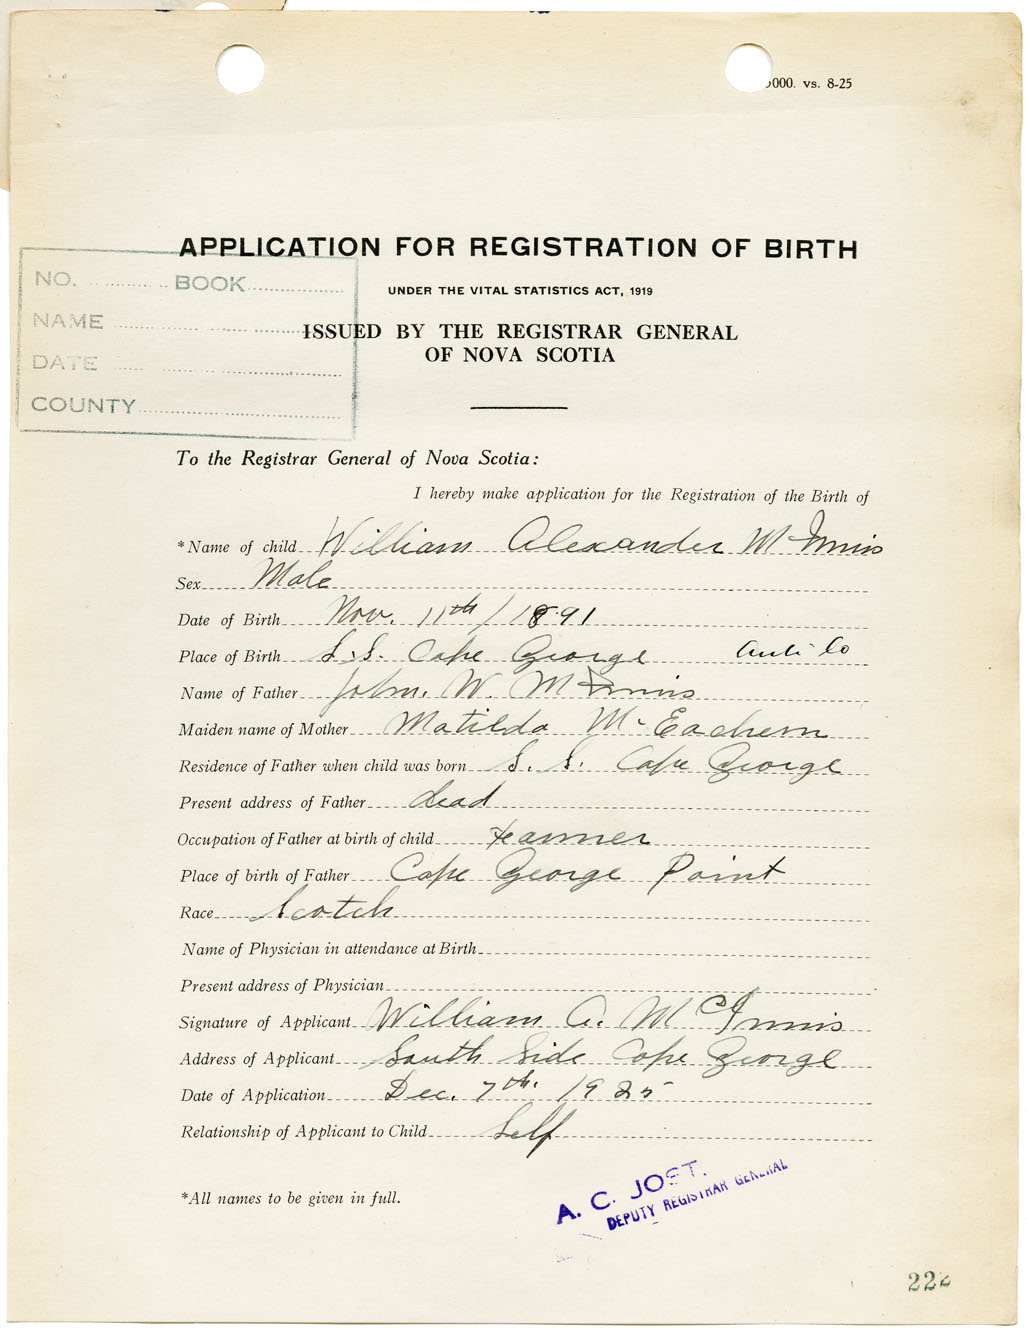 000. vs. 8-25
APPLICATION FOR REGISTRATION OF BIRTH
UNDER THE VITAL STATISTICS ACT, 1919
ISSUED BY THE REGISTRAR GENERAL
OF NOVA SCOTIA
NO. BOOK
NAME
DATE
COUNTY
To the Registrar General of Nova Scotia:
I hereby make application for the Registration of the Birth of
*Name of child William Alexander McInnis
Sex Male
Date of Birth Nov. 11th / 1891
Place of Birth S.S. Cape George Anti Co
Name of Father John. W. McInnis
Maiden name of Mother Matilda McEachern
Residence of Father when child was born S. S. Cape George
Present address of Father dead
Occupation of Father at birth of child Farmer
Place of birth of Father Cape George Point
Race Scotch
Name of Physician in attendance at Birth
Present address of Physician
Signature of Applicant William A. McInnis
Address of Applicant South Side Cape George
Date of Application Dec. 7th. 1925
Relationship of Applicant to Child Self
*All names to be given in full.
A. C. JOST.
DEPUTY REGISTRAR GENERAL
222